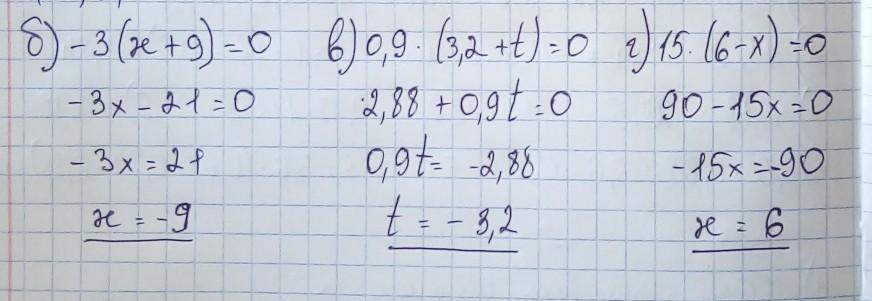 б) -3(x+9)=0
-3x-21=0
-3x=21
x=-9
в) 0,9·(3,2+t)=0
2,88+0,9t=0
0,9t= -2,88
t = - 3,2
г) 15·(6-x)=0
90-15x=0
-15x=-90
x = 6